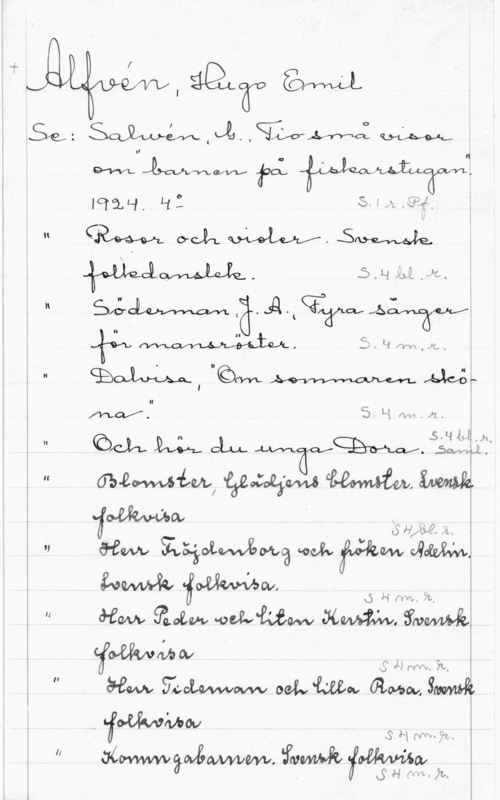 +
Alfvén, Hugo Emil
Se: Salwén, G., Tio små visor
om "barnen på fiskarstugan".
1924. 4º S. 1 r. Pf.
" Rosor och violer. Svensk
folkdanslek. S. 4 bl. r.
" Söderman, J. A., Fyra sånger
för mansröster. S. 4 m. r.
" Dalvisa, "Om sommaren skö-
na". S. 4 m. r.
" Och hör du unga Dora. S. 4 bl. r. Saml.
" Blomster, Glädjens blomster. Svensk
folkvisa S 4 bl. r.
" Herr Tröjdenborg och fröken Adelin.
Svensk folkvisa. S 4 m. r.
" Herr Peder och liten Kerstin. Svensk
folkvisa S 4 m. r.
" Herr Tideman och lilla Rosa. Svensk
folkvisa S 4 m. r.
" Konungabarnen. Svensk folkvisa
S 4 m. r.